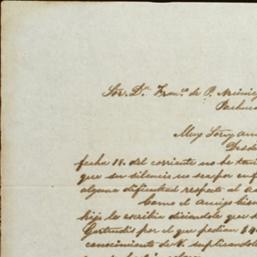 Sor. Dn. Franco. de P.
Pachuca
Muy Sor. y am
Desde
fecha 18. del corriente no he teni
que su silencio no sea por enf
alguna dificultad respecto al a
Como el amigo
hijo le escribia diciendole que
Gertrudis por el que pedian $
conocimiento de V. suplicandole